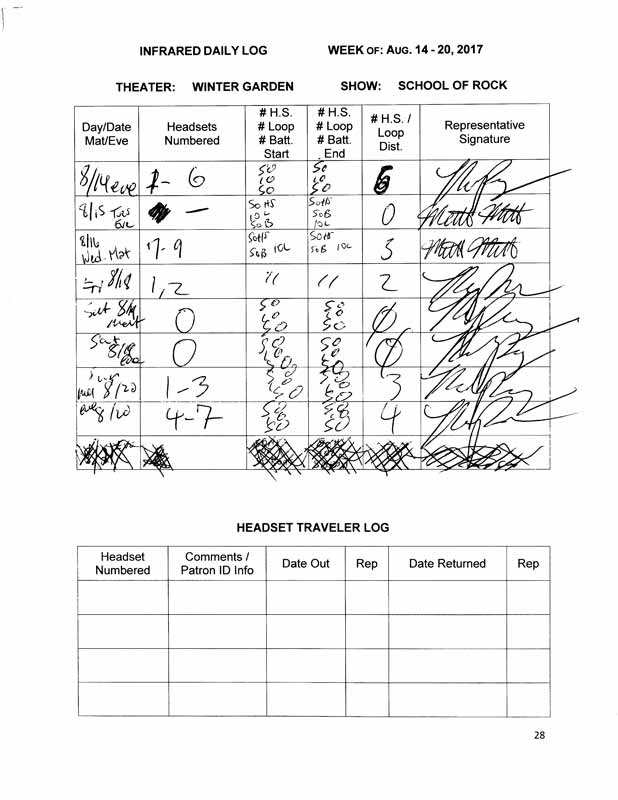 INFRARED DAILY LOG WEEK OF: AUG. 14 - 20, 2017
THEATER: WINTER GARDEN SHOW: SCHOOL OF ROCK
Day/Date Mat/Eve
Headsets Numbered
# H.S. # Loop # Batt. Start
# H.S. # Loop # Batt. End
# H.S. / Loop Dist.
Representative Signature
8/14 eve 1- 6 50 10 50 50 10 50 6
8/15 Tues Eve — 50HS 10L 50B 50HS 50B 10L 0
8/16 Wed. Mat 7-9 50HS 50B 10L 50HS 50B 10L 3
Fri 8/18 1,2 " " 2
Sat 8/19 mat 0 50 10 50 50 10 50 0
Sat 8/19 eve 0 50 10 50 50 10 50 0
8/20 1-3 50 10 50 50 10 50 3
eve 8/20 4-7 50 10 50 50 10 50 4
HEADSET TRAVELER LOG
Headset Numbered
Comments / Patron ID Info
Date Out
Rep
Date Returned
Rep
28